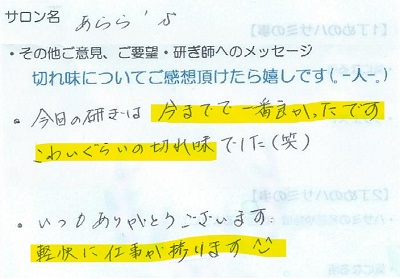 サロン名 あらら's
・その他ご意見、ご要望・研ぎ師へのメッセージ
切れ味についてご感想頂けたら嬉しです(.-人-.)
・今日の研ぎは 今までで一番良かったです
こわいぐらいの切れ味でした(笑)
・いつもありがとうございます。
軽快に仕事が捗ります